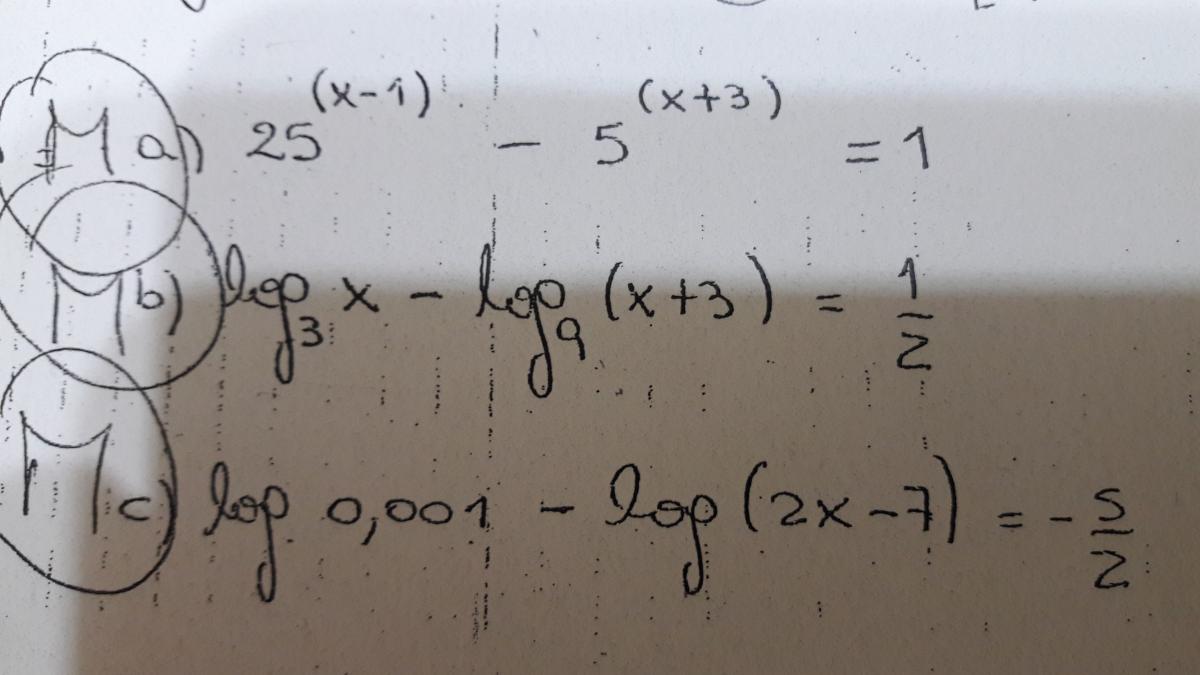 M a) 25^(x-1) - 5^(x+3) = 1
M b) log₃ x - log₉ (x+3) = 1/2
M c) log 0,001 - log (2x-7) = - 5/2